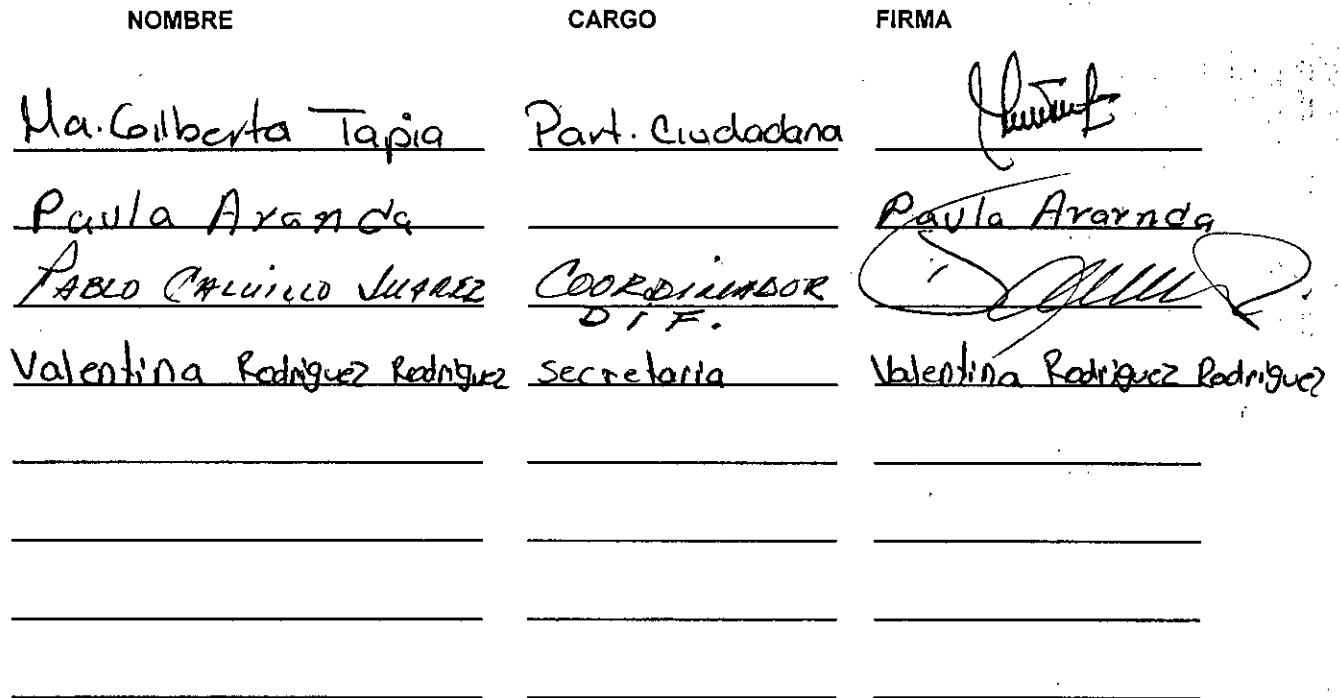 NOMBRE CARGO FIRMA
Ma. Gilberta Tapia Part. Ciudadana
Paula Aranda Paula Ararnda
PABLO CALVILLO JUAREZ COORDINADOR
DIF.
Valentina Rodriguez Rodriguez secretaria Valentina Rodriguez Rodriguez